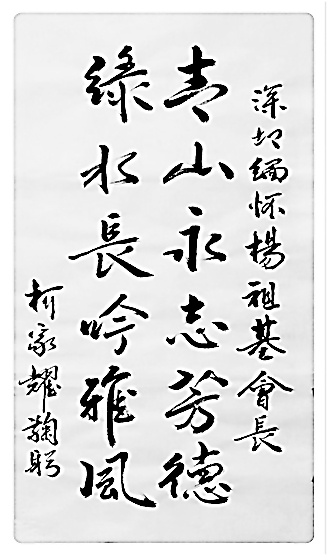 深切緬怀楊祖基會長
青山永志芳德
綠水長吟雅風
柯家耀鞠躬